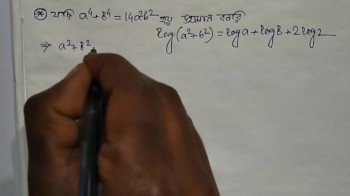 * যদি a⁴+b⁴ = 14a²b² হয় প্রমাণ করো
log(a²+b²) = log a + log b + 2 log 2
⇒ a²+b²